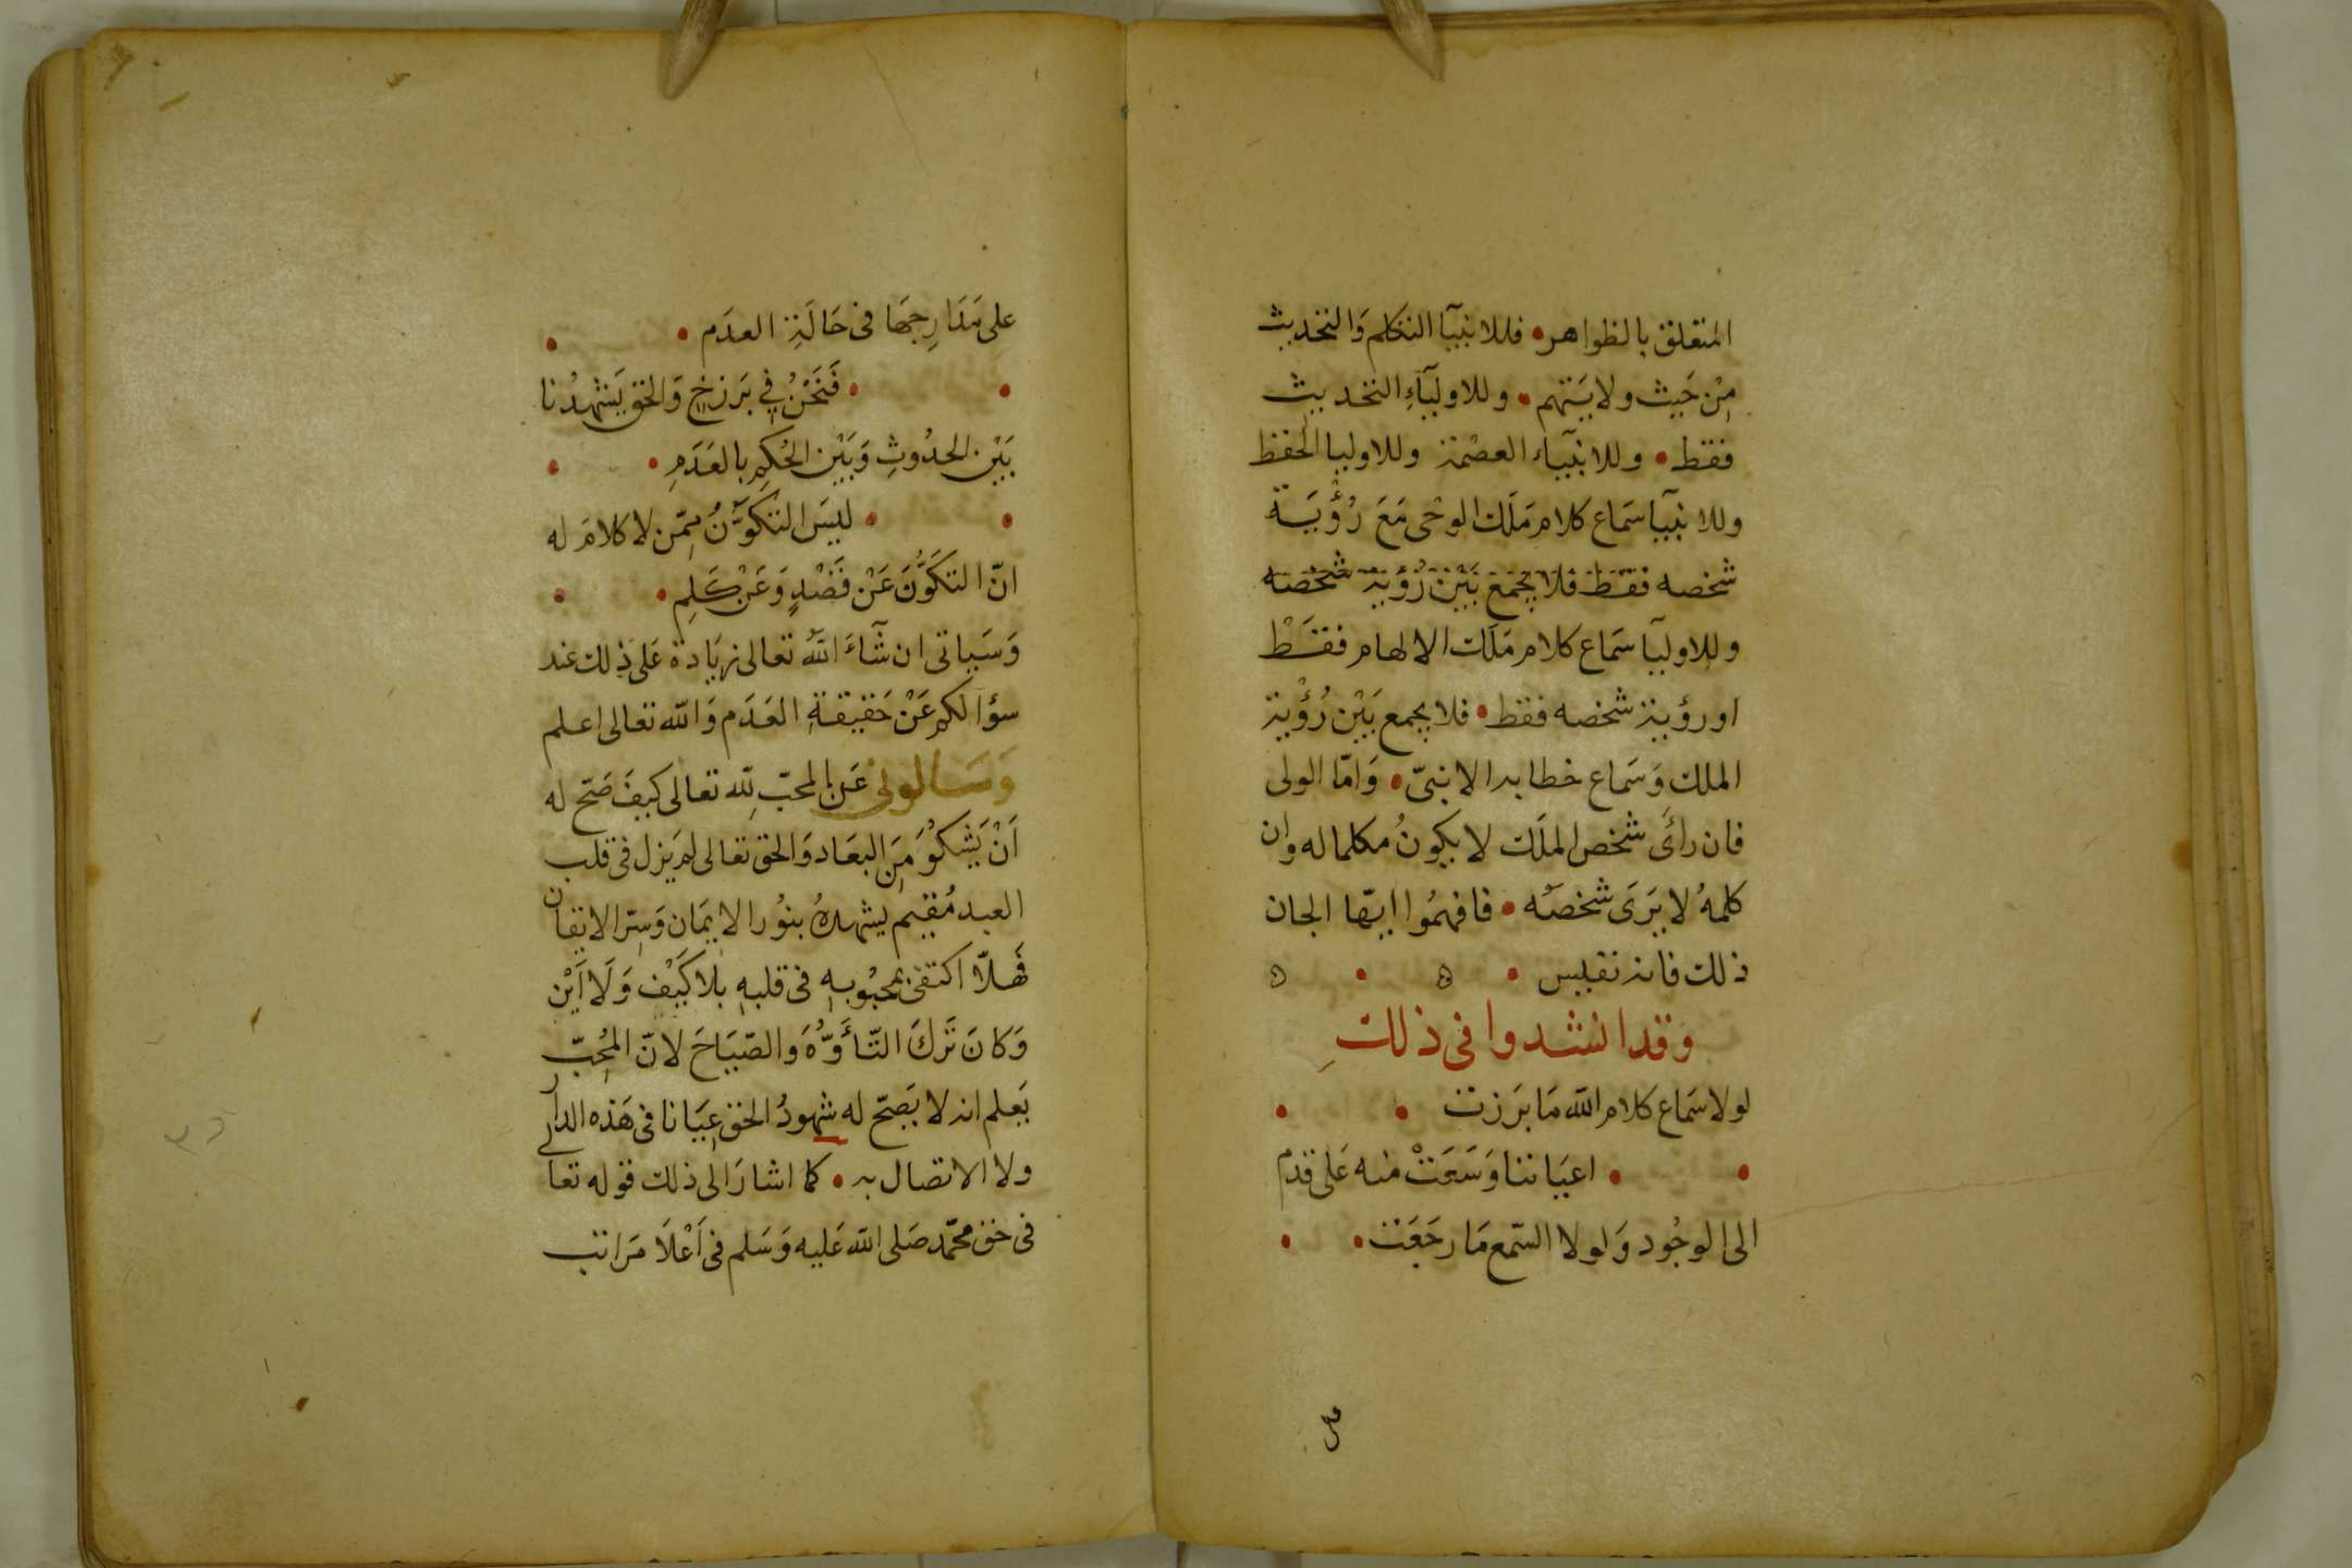 المتعلق بالظواهر • فللانبيآ التكلم وَالتحديث
مِنْ حَيث ولايَتهم • وللاوليآءِ التحديث
فقط • وللانبيآء العصْمة وللاوليا الحفظ
وللانبيآ سَماع كلام مَلَك الوحْى مَعَ رُؤْيَة
شخصه فقط فلا يجمَع بَيْن رُؤيَة شخصه
وللاوليآ سَماع كلام مَلَك الالهام فقَطْ
او رؤية شخصه فقط • فلا يجمع بَيْن رُؤْية
الملك وَسَماع خطابه الا نبىّ • وَامّا الولى
فان رأى شخص الملَك لا يكونُ مكلما له وان
كلمهُ لا يَرَى شخصَه • فافهمُوا ايهّا الجان
ذلك فانه نفيس • ه • ه
وقد انشدوا فى ذلك
لولا سَماع كلام الله مَا بَرَزت • •
• • اعيَاننا وَسَعَتْ منه عَلى قدَم
الى الوجُود وَلولا السّمع مَا رجَعَت • •
على مَدَارِجهَا فى حَالَةِ العدَم • •
• • فَنَحْنُ فِي بَرزخٍ وَالحق يَشهدُنا
بَيْن الحدُوثِ وَبَيْن الحُكمِ بالعَدَمِ • •
• • ليسَ التكوّنُ مِمّن لا كلامَ له
انّ التكَوُّنَ عَنْ قَصْدٍ وَعَنْ كَلِمِ • •
وَسَياتى ان شآءَ اللّهُ تعالى زيَادة عَلى ذلك عند
سؤالكم عَنْ حَقيقةِ العَدَم وَاللّه تعالى اعلم
وَسَالونى عَن المحبّ لِلّه تعالى كيفَ صَحّ له
اَنْ يَشكوُ مِنَ البعَاد وَالحق تعالى لم يَزل فى قلب
العبد مُقيم يشهدهُ بنوُر الايمَان وَسِرّ الايقان
فَهلاّ اكتفى بمحبُوبهِ فى قلبهِ بلا كَيْف وَلَا اَيْن
وَكانَ تَركَ التّأَوُّهَ وَالصّيَاحَ لانّ المُحِبّ
يَعلم انه لا يَصحّ له شهودُ الحق عِيَانا فى هَذه الدار
ولا الاتصال به • كما اشارَ الى ذلك قوله تعالى
فى حق محمّد صَلى اللّه عَليه وَسَلم فى اَعْلَا مَراتب